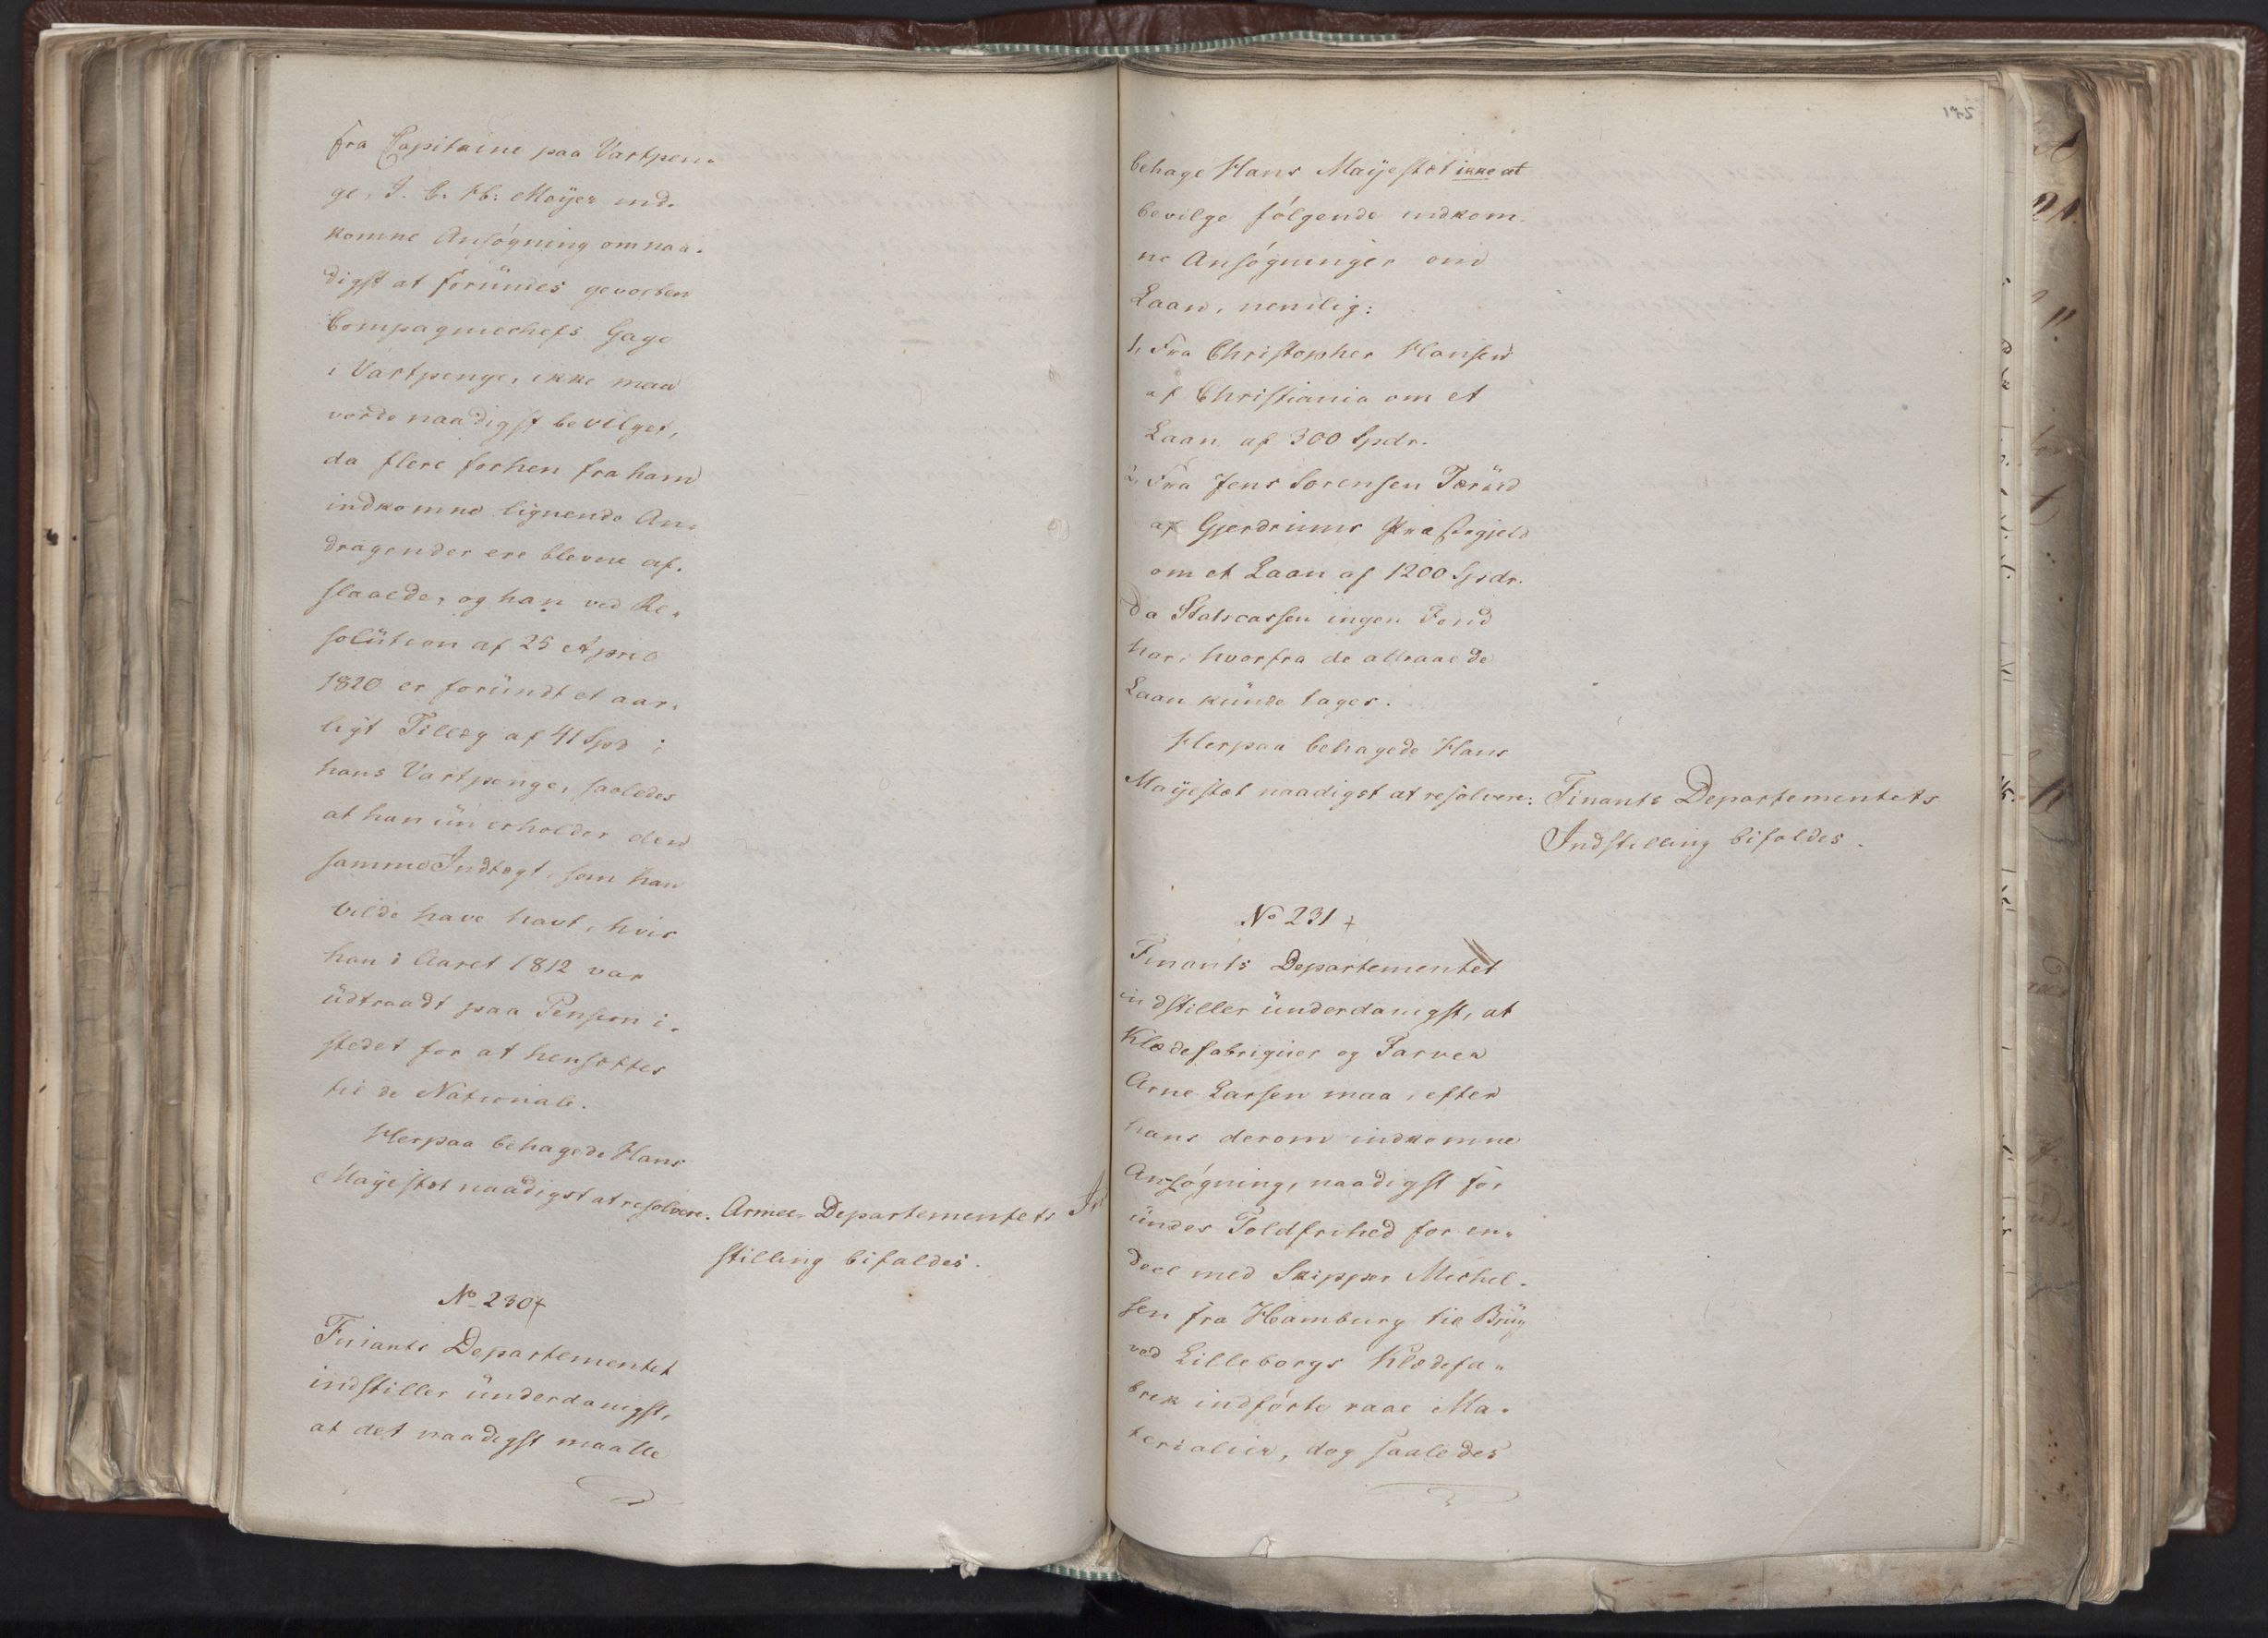 fra Capitaine paa Vartpen-
ge, J. C. Hb: Meyer ind-
komne Ansøgning om naa-
digst at forundes gevorben
Compagniechefs Gage
i Vartpenge, ikke maa
vorde naadigst bevilget,
da flere forhen fra ham
indkomne lignende An-
dragender ere blevne af-
slaaede, og han ved Re-
solution af 25 April
1820 er forundt et aar-
ligt Tillæg af 41 Spd i
hans Vartpenge, saaledes
at han nu erholder den
samme Indtægt, som han
vilde have havt, hvis
han i Aaret 1812 var
udtraadt paa Pension i-
stedet for at hensættes
til de Nationale.
Herpaa behagede Hans
Majestæt naadigst at resolvere. Armee-Departementets In
stilling bifaldes.
No 230
Finants Departementet
indstiller underdanigst,
at det naadigst maatte
175
behage Hans Majestæt ikke at
bevilge følgende indkom-
ne Ansøgninger om
Laan, nemlig:
1, Fra Christopher Hansen
af Christiania om et
Laan af 300 Spdr.
2, Fra Jens Sørensen Tærud
af Gjerdrums Præstegjeld
om et Laan af 1200 Spdr.
Da Statscassen ingen Fond
har, hvorfra de attraaede
Laan kunde tages.
Herpaa behagede Hans
Majestæt naadigst at resolvere: Finants Departementets
Indstilling bifaldes.
No 231
Finants Departementet
indstiller underdanigst, at
Klædefabriqueur og Farver
Arne Larsen maa, efter
hans derom indkomne
Ansøgning, naadigst for
undes Toldfrihed for en-
deel med Skipper Michel-
sen fra Hamburg til Brug
ved Lilleborgs Klædefa-
brik indførte raae Ma-
terialier, dog saaledes